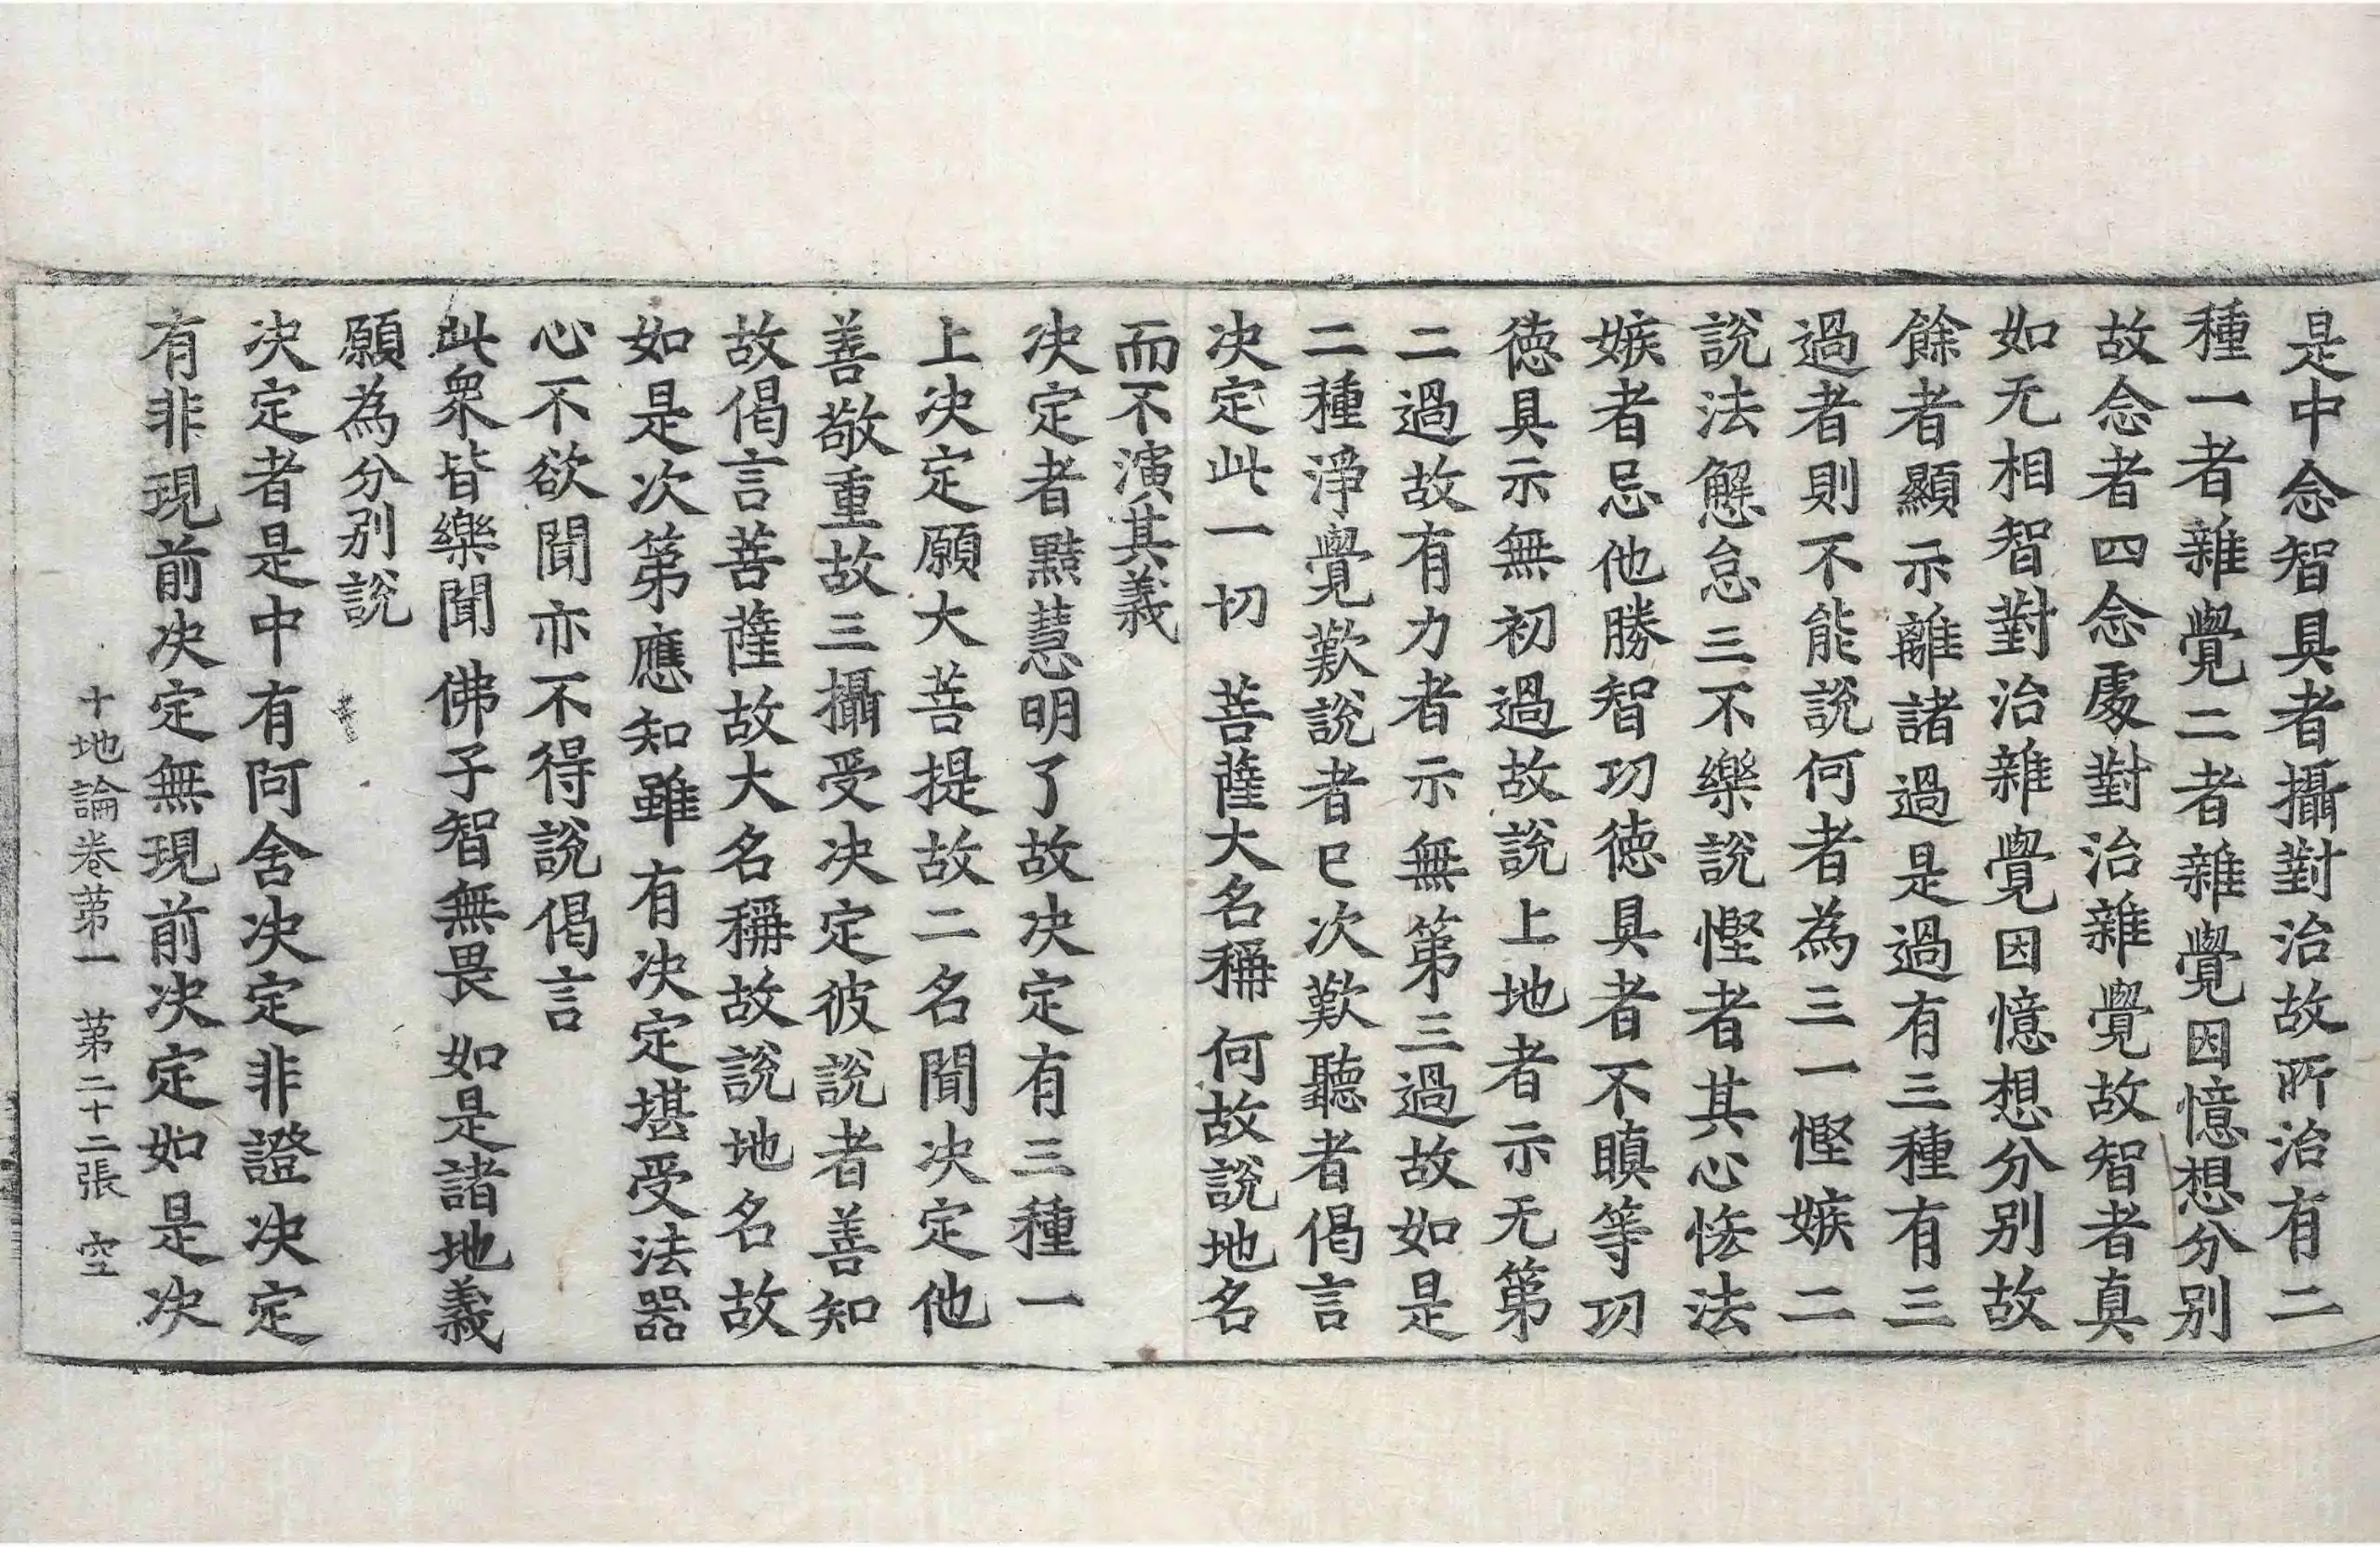 是中念智具者攝對治故所治有二
種一者雜覺二者雜覺因憶想分别
故念者四念處對治雜覺故智者真
如无相智對治雜覺因憶想分别故
餘者顯示離諸過是過有三種有三
過者則不能説何者為三一慳嫉二
說法懈怠三不樂說慳者其心悋法
嫉者忌他勝智功徳具者不瞋等功
徳具示無初過故説上地者示无第
二過故有力者示無第三過故如是
二種淨覺歎說者已次歎聽者偈言
决定此一切　菩薩大名稱　何故説地名
而不演其義
决定者黠慧明了故决定有三種一
上决定願大菩提故二名聞决定他
善敬重故三攝受决定彼説者善知
故偈言菩薩故大名稱故説地名故
如是次第應知雖有决定堪受法器
心不欲聞亦不得說偈言
此衆皆樂聞　佛子智無畏　如是諸地義
願為分别説
决定者是中有阿含决定非證决定
有非現前决定無現前决定如是决
十地論卷第一　第二十二張　空